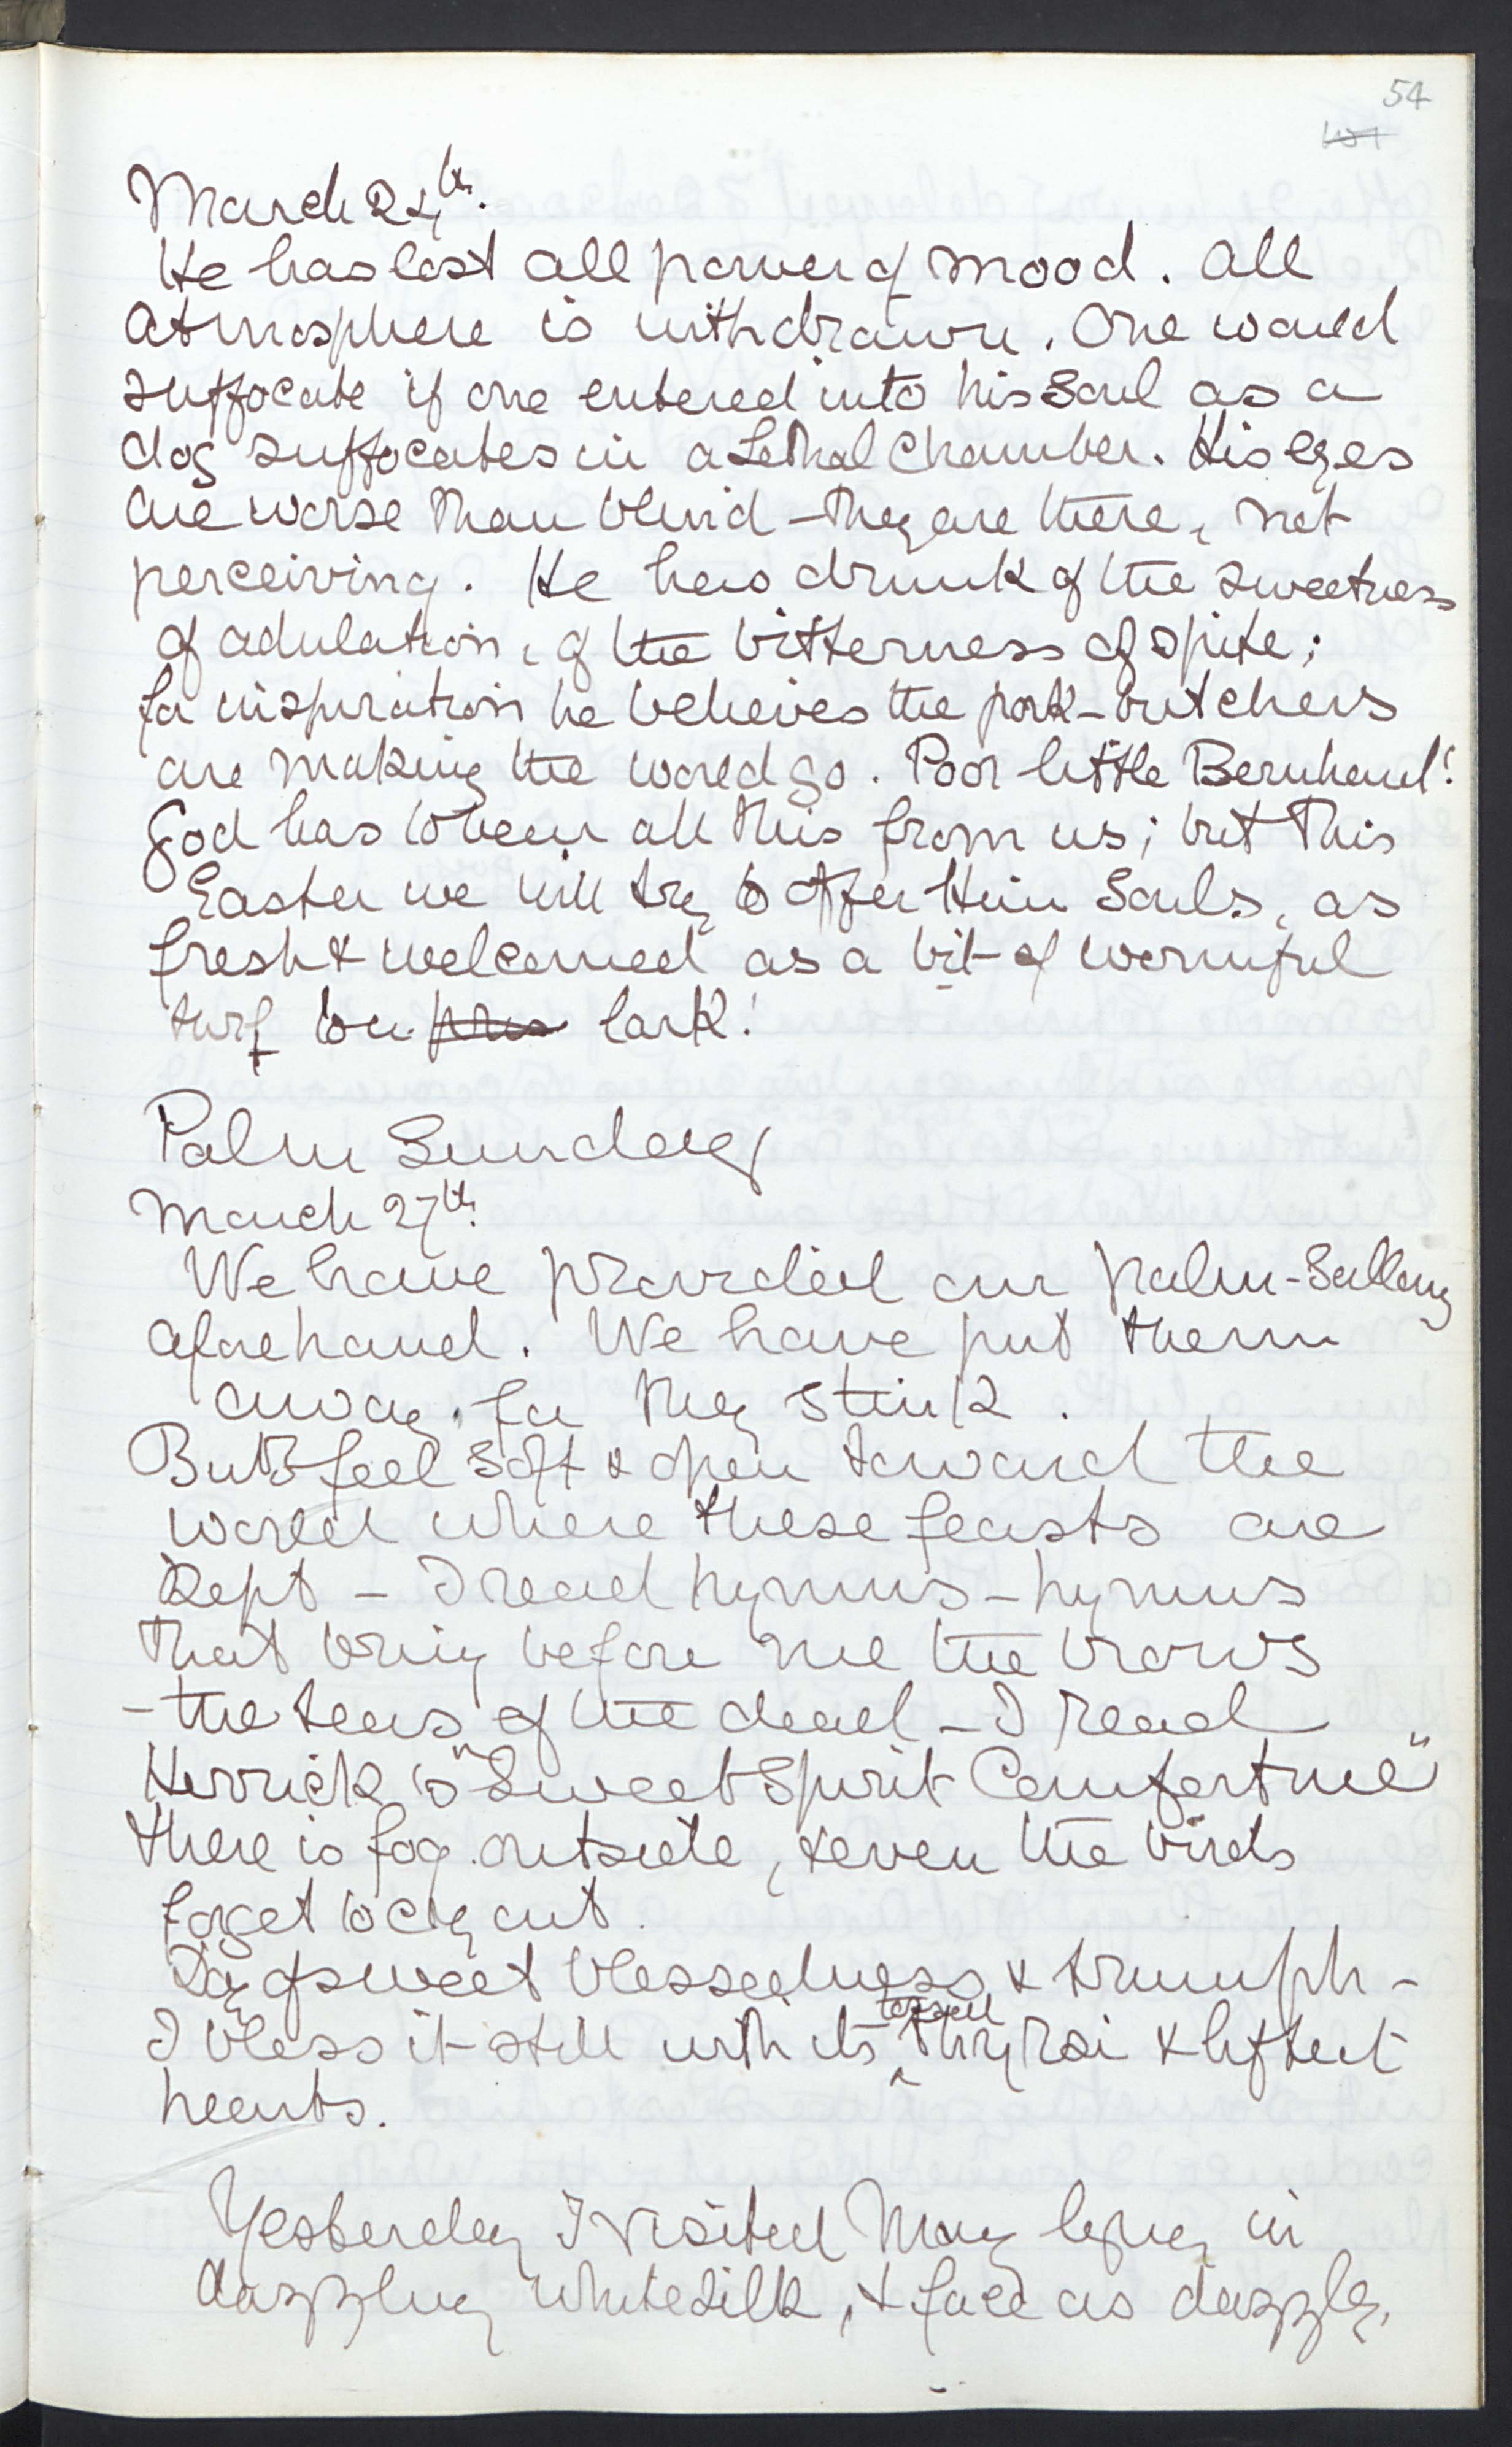 54
March 24th.
He has lost all power of mood. All
atmosphere is withdrawn. One would
suffocate if one entered into his soul as a
dog suffocates in a Lethal Chamber. His eyes
are worse than blind – they are there, not
perceiving. He has drunk of the sweetness
of adulation, of the bitterness of spite;
for inspiration he believes the pork-butchers
are making the world go. Poor little Bernhard!
God has taken all this from us; but this
Easter we will try to offer Him Souls, as
fresh & welcomed as a bit of wormful
turf to a lark!
Palm Sunday
March 27th.
We have provided our palm-Sallows
aforehand. We have put them
away, for they stink.
But I feel soft & open toward the
world where these feasts are
kept – I read hymns – hymns
that bring before me the brows
– the tears of the dead – I read
Herrick's "Sweet Spirit Comfort me"
There is fog outside, & even the birds
forget to cry out.
Day of sweet blessedness & triumph –
I bless it still with its tossed thyrsi & lifted
hearts.
Yesterday I visited May lying in
dazzling white silk, & face as dazzling,